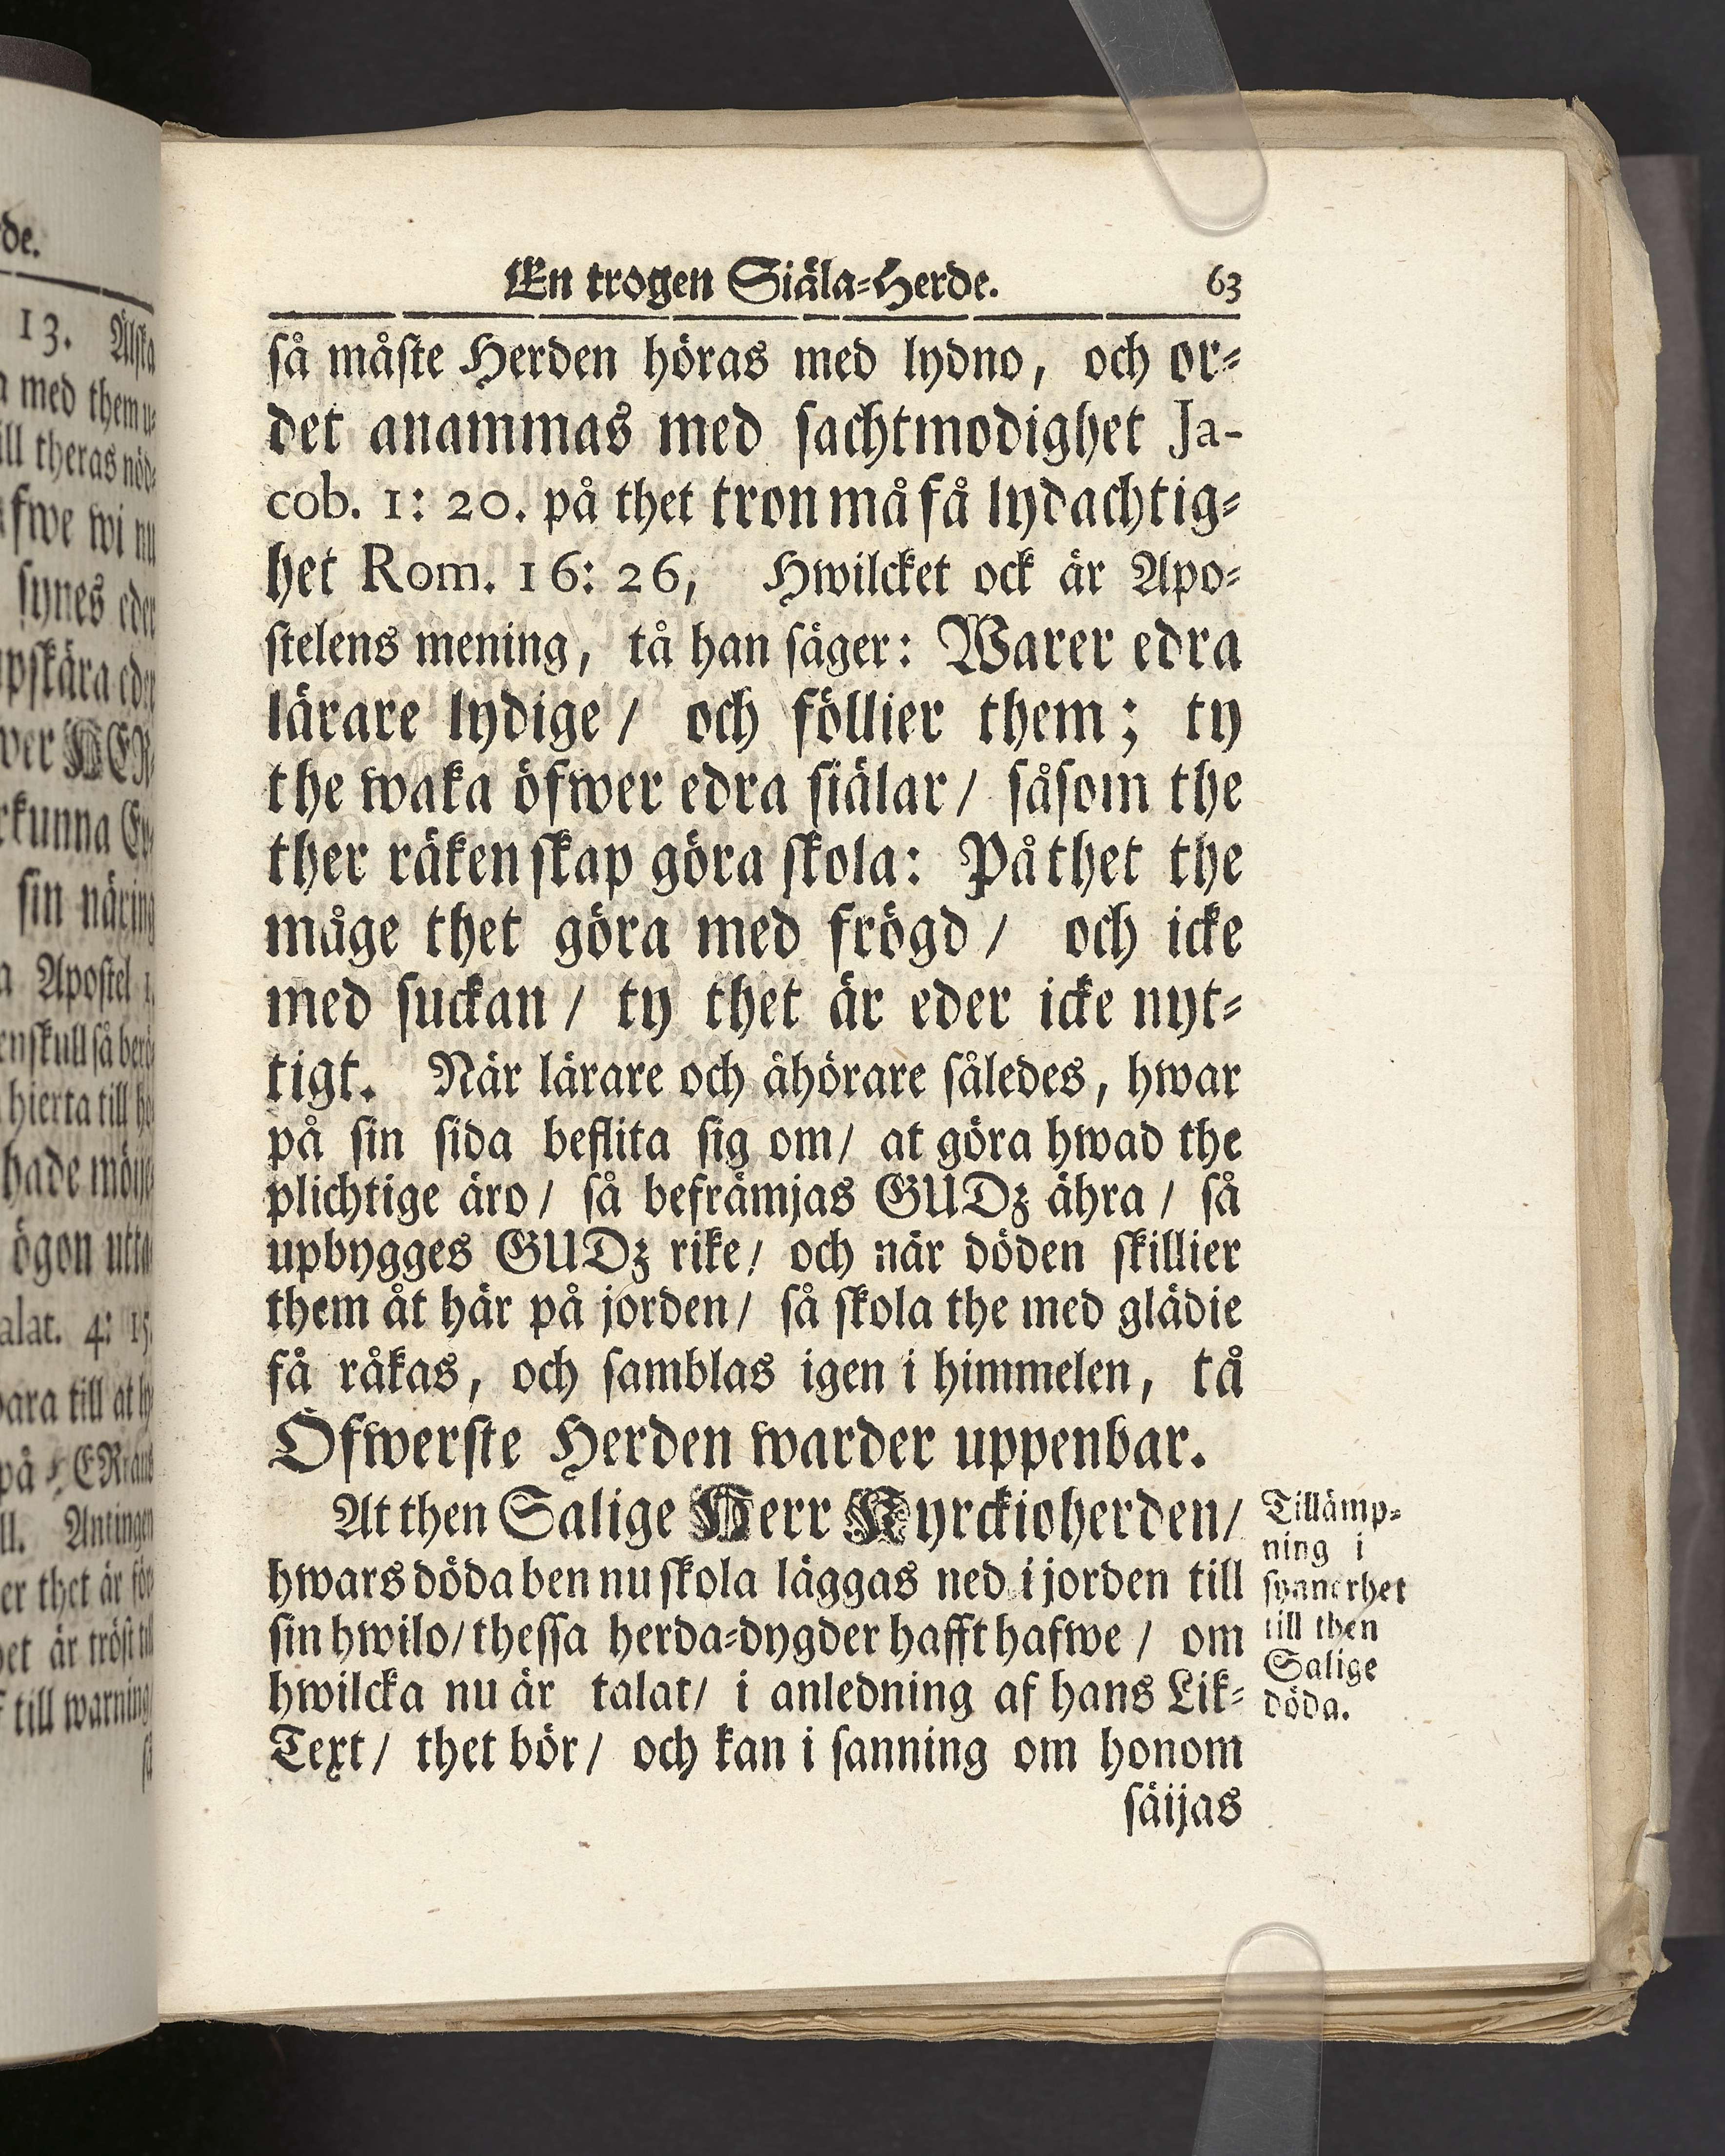 de.
13. Älska
med them u-
ill theras nöd-
fwe wi nu
synes eder
pskära eder
wer HER-
rkunna Ev-
sin näring
a Apostel 1.
enskull så berö-
hierta till he-
hade möije-
ögon utta-
alat. 4: 15.
bara till at ly-
på
ll. Antingen
er thet är för
et är tröst till
till warning
så
En trogen Siäla-Herde. 63
så måste Herden höras med lydno, och or-
det anammas med sachtmodighet Ja-
cob. 1: 20. på thet tron må få lydachtig-
het Rom. 16: 26, Hwilcket ock är Apo-
stelens mening, tå han säger: Warer edra
lärare lydige/ och föllier them; ty
the waka öfwer edra siälar/ såsom the
ther räkenskap göra skola: På thet the
måge thet göra med frögd/ och icke
med suckan/ ty thet är eder icke nyt-
tigt. När lärare och åhörare således, hwar
på sin sida beflita sig om/ at göra hwad the
plichtige äro/ så befrämjas GUDz ähra/ så
upbygges GUDz rike/ och när döden skillier
them åt här på jorden/ så skola the med glädie
få råkas, och samblas igen i himmelen, tå
Öfwerste Herden warder uppenbar.
At then Salige Herr Kyrckioherden/
hwars döda ben nu skola läggas ned i jorden till
sin hwilo/ thessa herda-dygder hafft hafwe/ om
hwilcka nu är talat/ i anledning af hans Lik-
Text/ thet bör/ och kan i sanning om honom
säijas
Tillämp-
ning i
synnerhet
till then
Salige
döda.